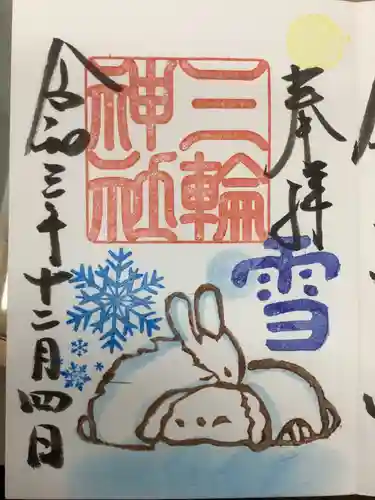 奉拝
雪
三輪
神社
令和三年十二月四日